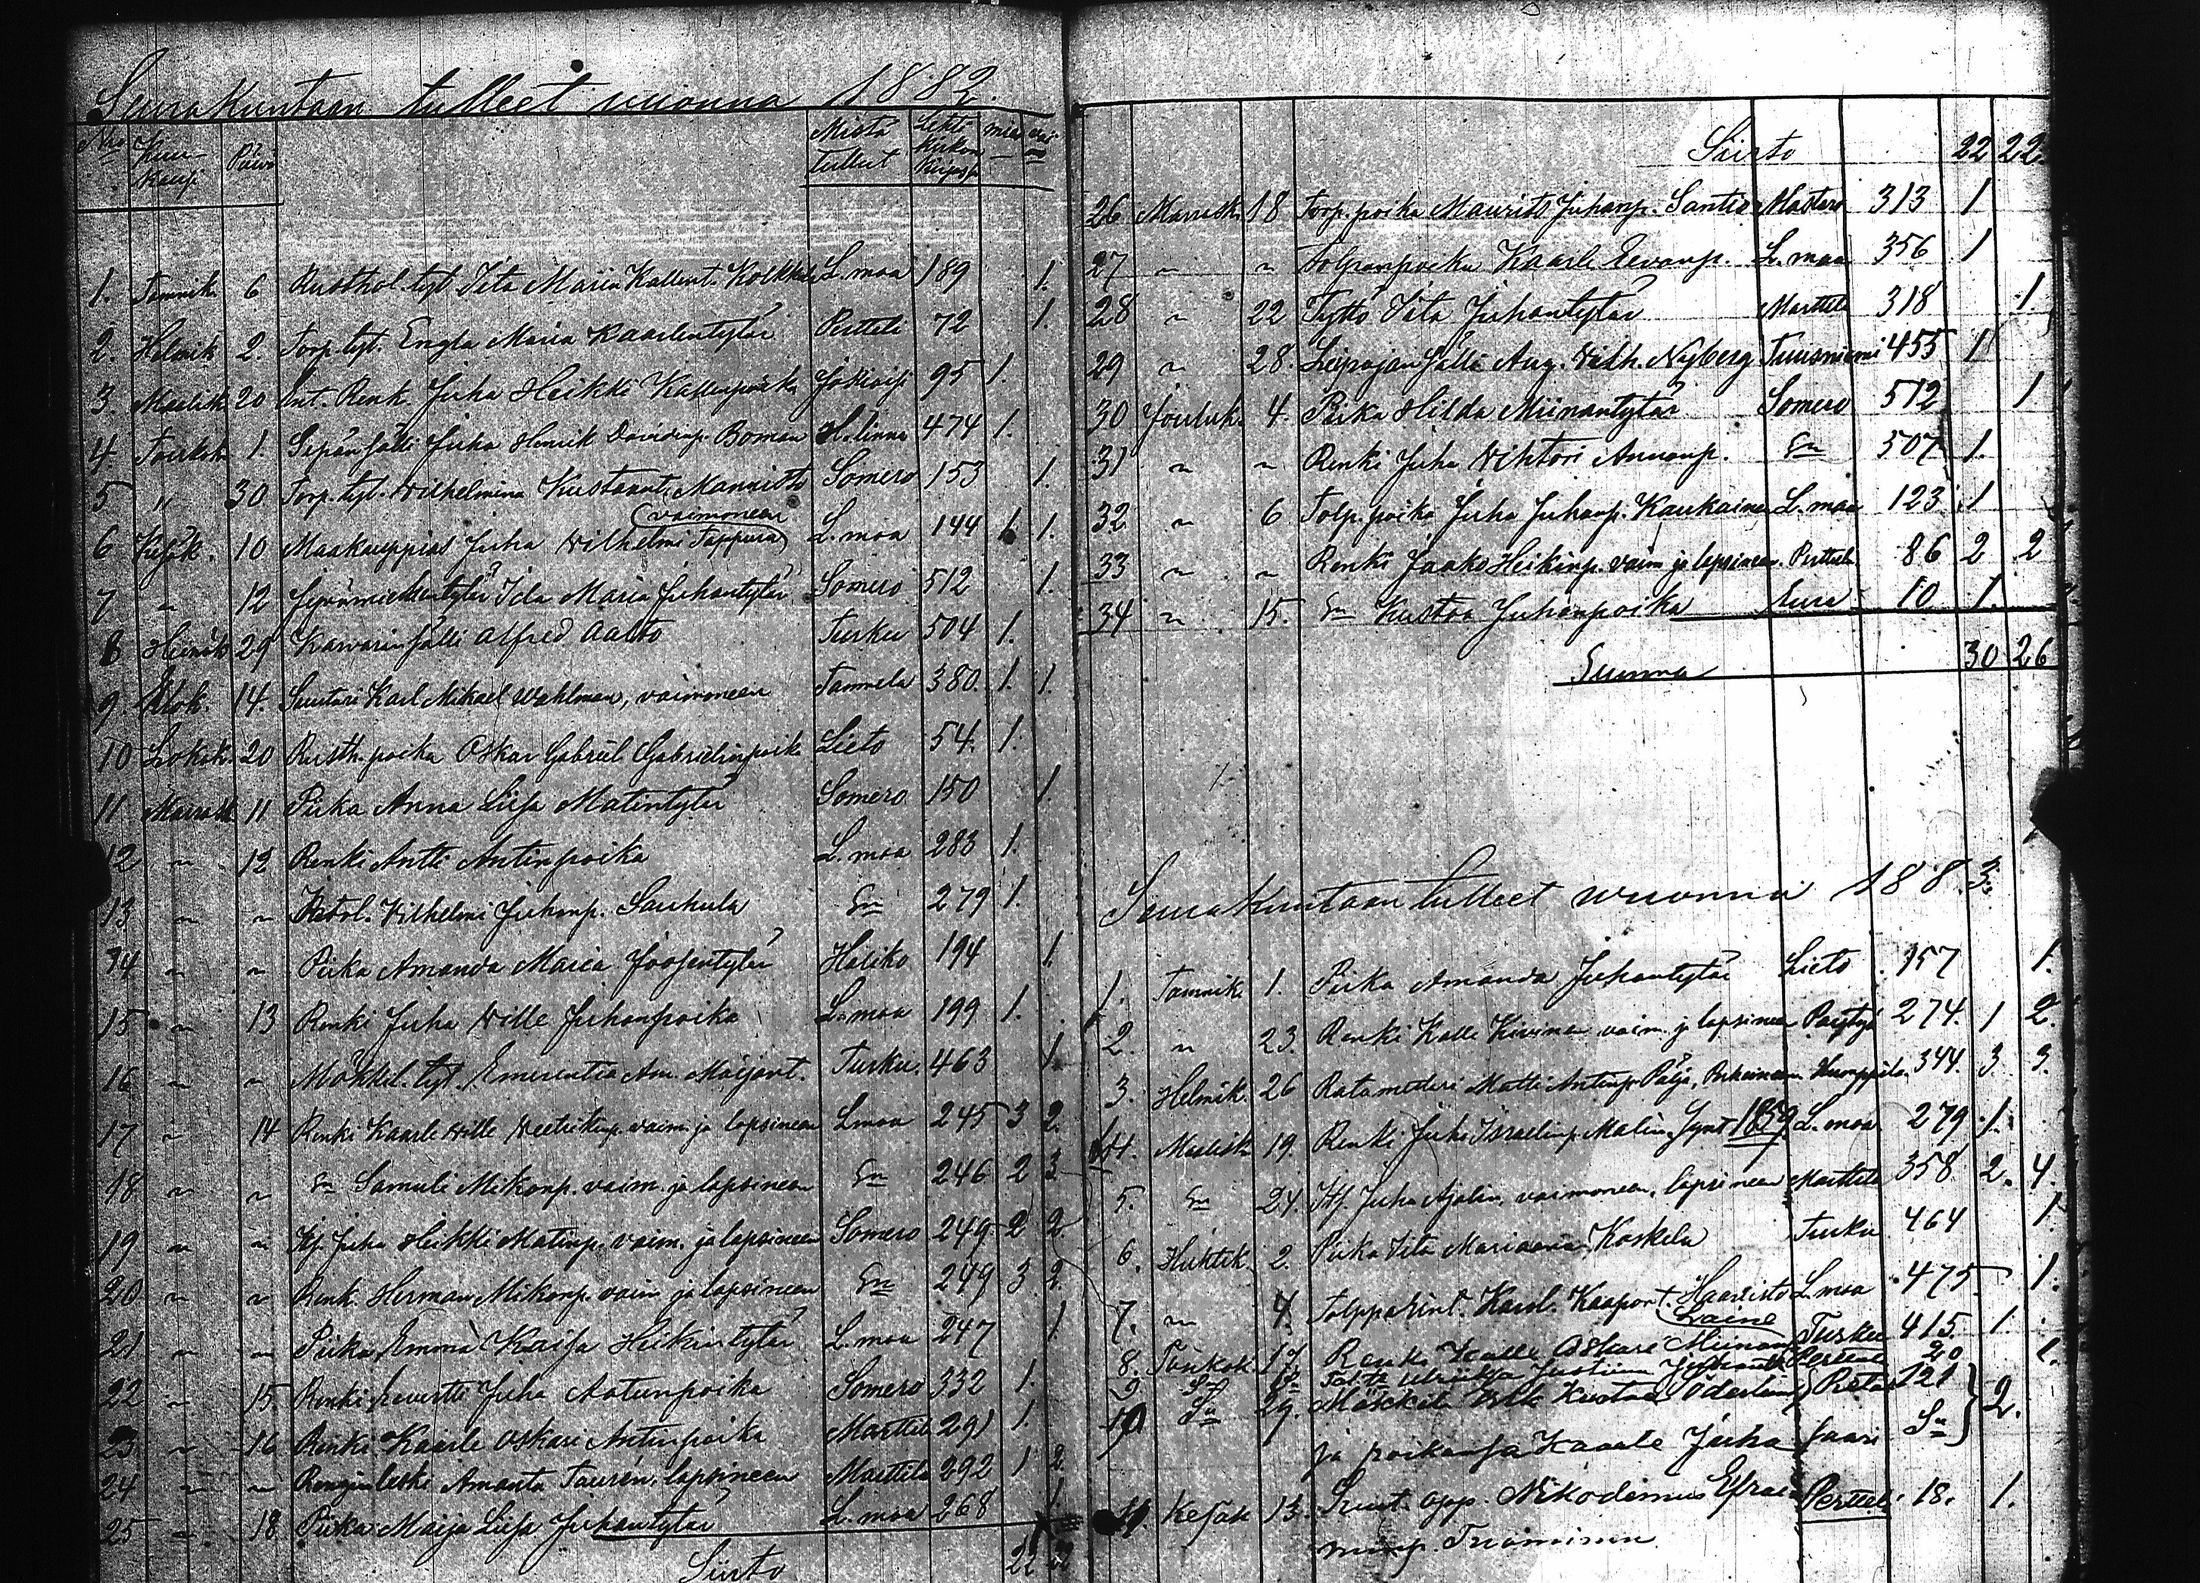 Seurakuntaan tulleet vuonna 1882.
Nro Kuukausi Päivä Mistä tullut Lehti kirkon kirjassa mies vai
1. Tammik. 6 Rusthol. tyt. Iita Maria Kallent. Kolkkala L. maa 189 1.
2. Helmik. 2. Torp. tyt. Engla Maria Kaarlentytär Pertteli 72 1.
3. Maalisk. 20 Int. Renk. Juha Heikki Kallenpoika Jokioisi 95 1.
4. Toukok. 1. Sepänsälli Juha Henrik Davidinp. Boman H. linna 474 1.
5 " 30. Torp. tyt. Wilhelmina Kustaant. Mannisto Somero 153 1.
6 Kesäk. 10 Maakauppias Juha Wilhelmi Tappura vaimoneen L. maa 144 1. 1.
7 " 12 Ida Maria Juhantytär Somero 512 1.
8 Heinäk. 29 Karvarinsälli Alfred Aalto Turku 504 1.
9. Elok. 14. Suutari Karl Mikael Wahlman, vaimoneen Tammela 380. 1. 1.
10 Lokak. 20 Rusth. poika Oskar Gabriel Gabrielinpoika Lieto 54. 1.
11 Marrask. 11 Piika Anna Liisa Matintytär Somero 150 1.
12 " 12 Renki Antti Antinpoika L. maa 283 1.
13 " " Wilhelmi Juhanp. Sauhula Sn 279 1.
14 " " Piika Amanda Maria Joosentytär Haliko 194 1.
15 " 13 Renki Juha Wille Juhanpoika L. maa 199 1.
16 " " Mökkil. tyt. Emerentia Am. Maijant. Turku. 463 1
17 " 14 Renki Kaarle Wille Veetrikinp. vaim. ja lapsineen L. maa 245 3 2.
18 " " Sn Samuli Mikonp. vaim. ja lapsineen Sn 246 2 3
19 " " Itj. Juha Heikki Matinp. vaim. ja lapsineen Somero 249 2 2.
20 " " Renk. Herman Mikonp. vaim ja lapsineen Sn 249 3 2.
21 " " Piika Emma Kaisa Heikintytär L. maa 247 1.
22 " 15 Renki Juha Antinpoika Somero 332 1.
23 " 16 Renki Kaarle Oskari Antinpoika Marttila 291 1.
24 " " Renginleski Amanta Taurén, lapsineen Marttila 292 1 2
25 " 18 Piika Maija Liisa Juhantytär L. maa 268 1.
Siirto 22 22
Siirto 22 22.
26 Marrask. 18 Torp. poika Maurits Juhanp. Santio 313 1
27 " " Kaarle Eevanp. L. maa 356 1
28 " 22 Tyttö Iita Juhantytär Marttila 318 1.
29 " 28. Leipojan sälli Aug. Vilh. Nyberg Tuusniemi 455 1
30 Jouluk. 4. Piika Hilda Miinantytär Somero 512 1
31 " " Renki Juha Vihtori Annanp. Sn 507 1.
32 " 6 Tolp. poika Juha Juhanp. Kaukainen L. maa 123 1
33 " " Renki Jaako Heikinp. vaim ja lapsineen. Pertteli 86 2 2
34 " 15. Sn Kustaa Juhanpoika Eura 10 1.
Summa 30 26
Seurakuntaan tulleet vuonna 1883.
1. Tammik. 1. Piika Amanda Juhantytär Lieto 157 1.
2. " 23. Renki Kalle Kivinen vaim. ja lapsineen Pöytyä 274. 1 2.
3. Helmik. 26 Ratamesteri Matti Antinp. Pätjä, Perheineen Humppila. 344. 3 3.
4. Maalisk. 19. Renki Juha Israelinp. Malin. Synt. 1859. L. maa 279 1.
5. Sn 24. Itj. Juha Ajalin, vaimoneen, lapsineen Marttila 358 2. 4.
6. Huhtik. 2. Piika Iita Mariaana Koskela Turku 464 1.
7. " 4. Tolppari nt. Karol. Kaapont. Haavisto L. maa 475 1.
8. Toukok. 17. Renki Kalle Oskari Miinanp. Laine Turku 415. 1.
9 Sn Sn Justiina Perttele 20 1.
10 Sn 29. Mökkilä Kustaa Öderlin Pietar 121 } 2.
ja poikansa Kaarle Juha saari Sn
11. Kesäk 13. Suut. opp. Nikodemus Efrai Perttel. 18. 1.
minp. Tuominen